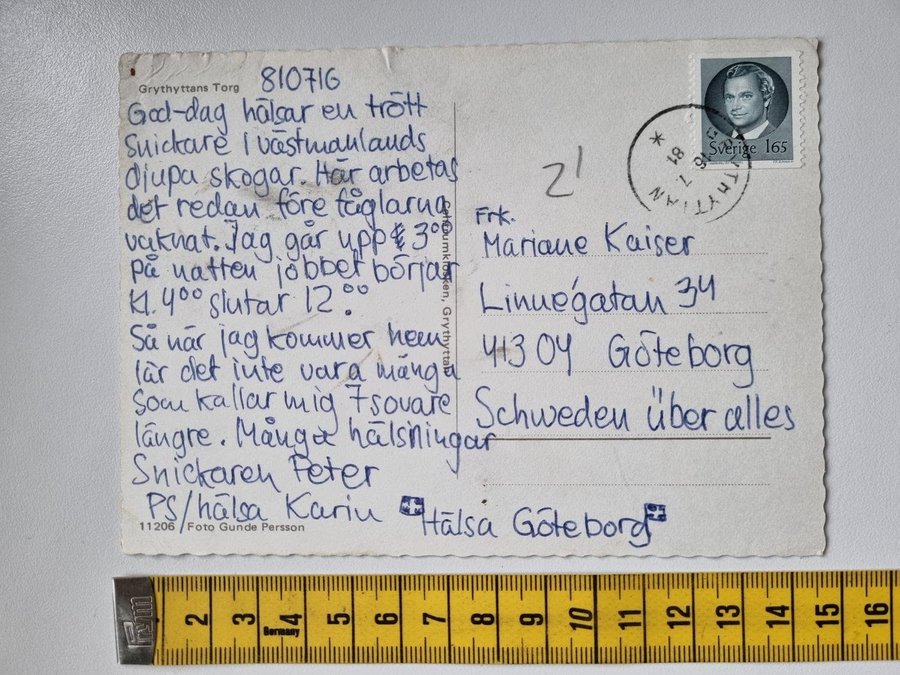 Grythyttans Torg
810716
God-dag hälsar en trött
Snickare i västmanlands
djupa skogar. Här arbetas
det redan före fåglarna
vaknat. Jag går upp 3⁰⁰
på natten jobbet börjar
kl. 4⁰⁰ slutar 12⁰⁰.
Så när jag kommer hem
lär det inte vara många
som kallar mig 7sovare
längre. Många hälsningar
Snickaren Peter
PS/hälsa Karin
Hälsa Göteborg
11206 / Foto Gunde Persson
Grythyttan
21
Sverige 165
GRYTHYTTAN
16 7 81
Frk.
Mariane Kaiser
Linnégatan 34
413 04 Göteborg
Schweden über alles
Prym
2 3 4 5 6 7 8 9 10 11 12 13 14 15 16
Germany